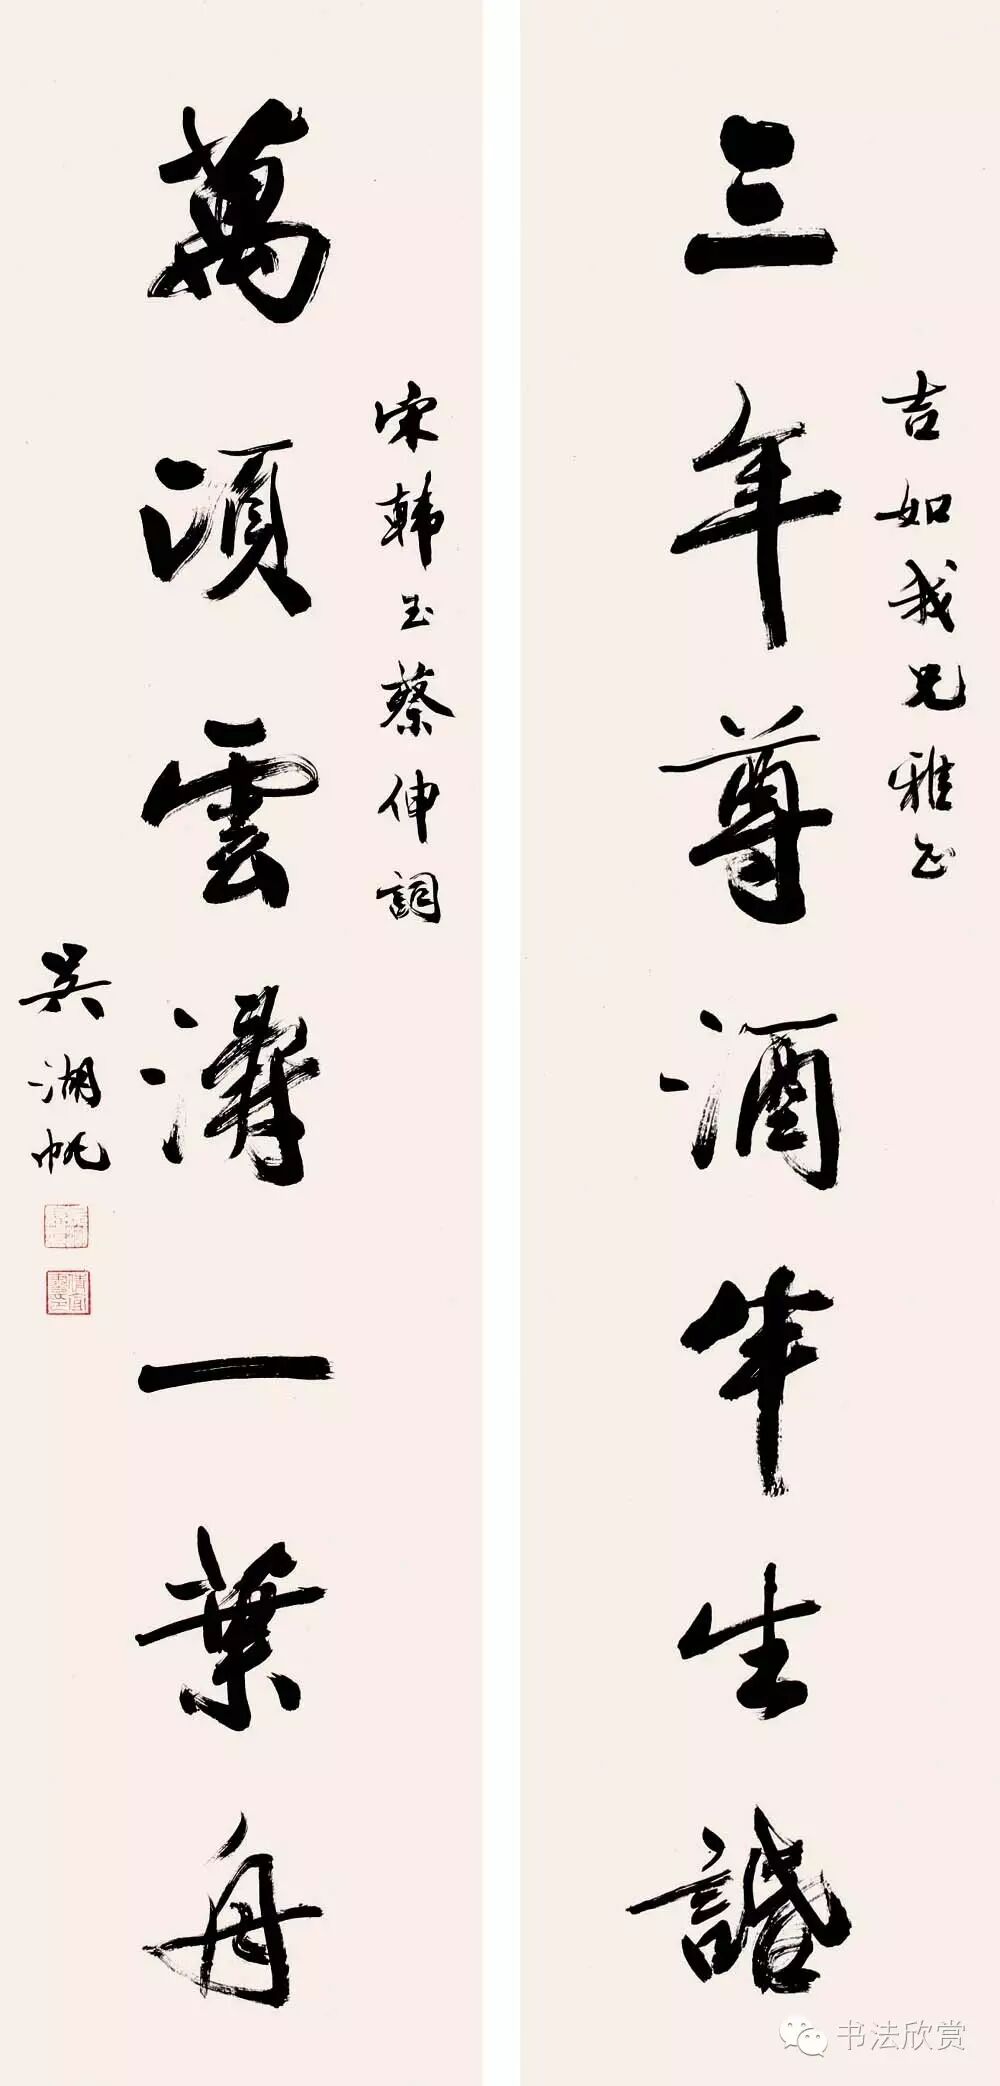 吉如我兄雅正
三年尊酒半生䛡
宋韓玉蔡伸詞
萬頃雲濤一葉舟
吴湖帆
书法欣赏